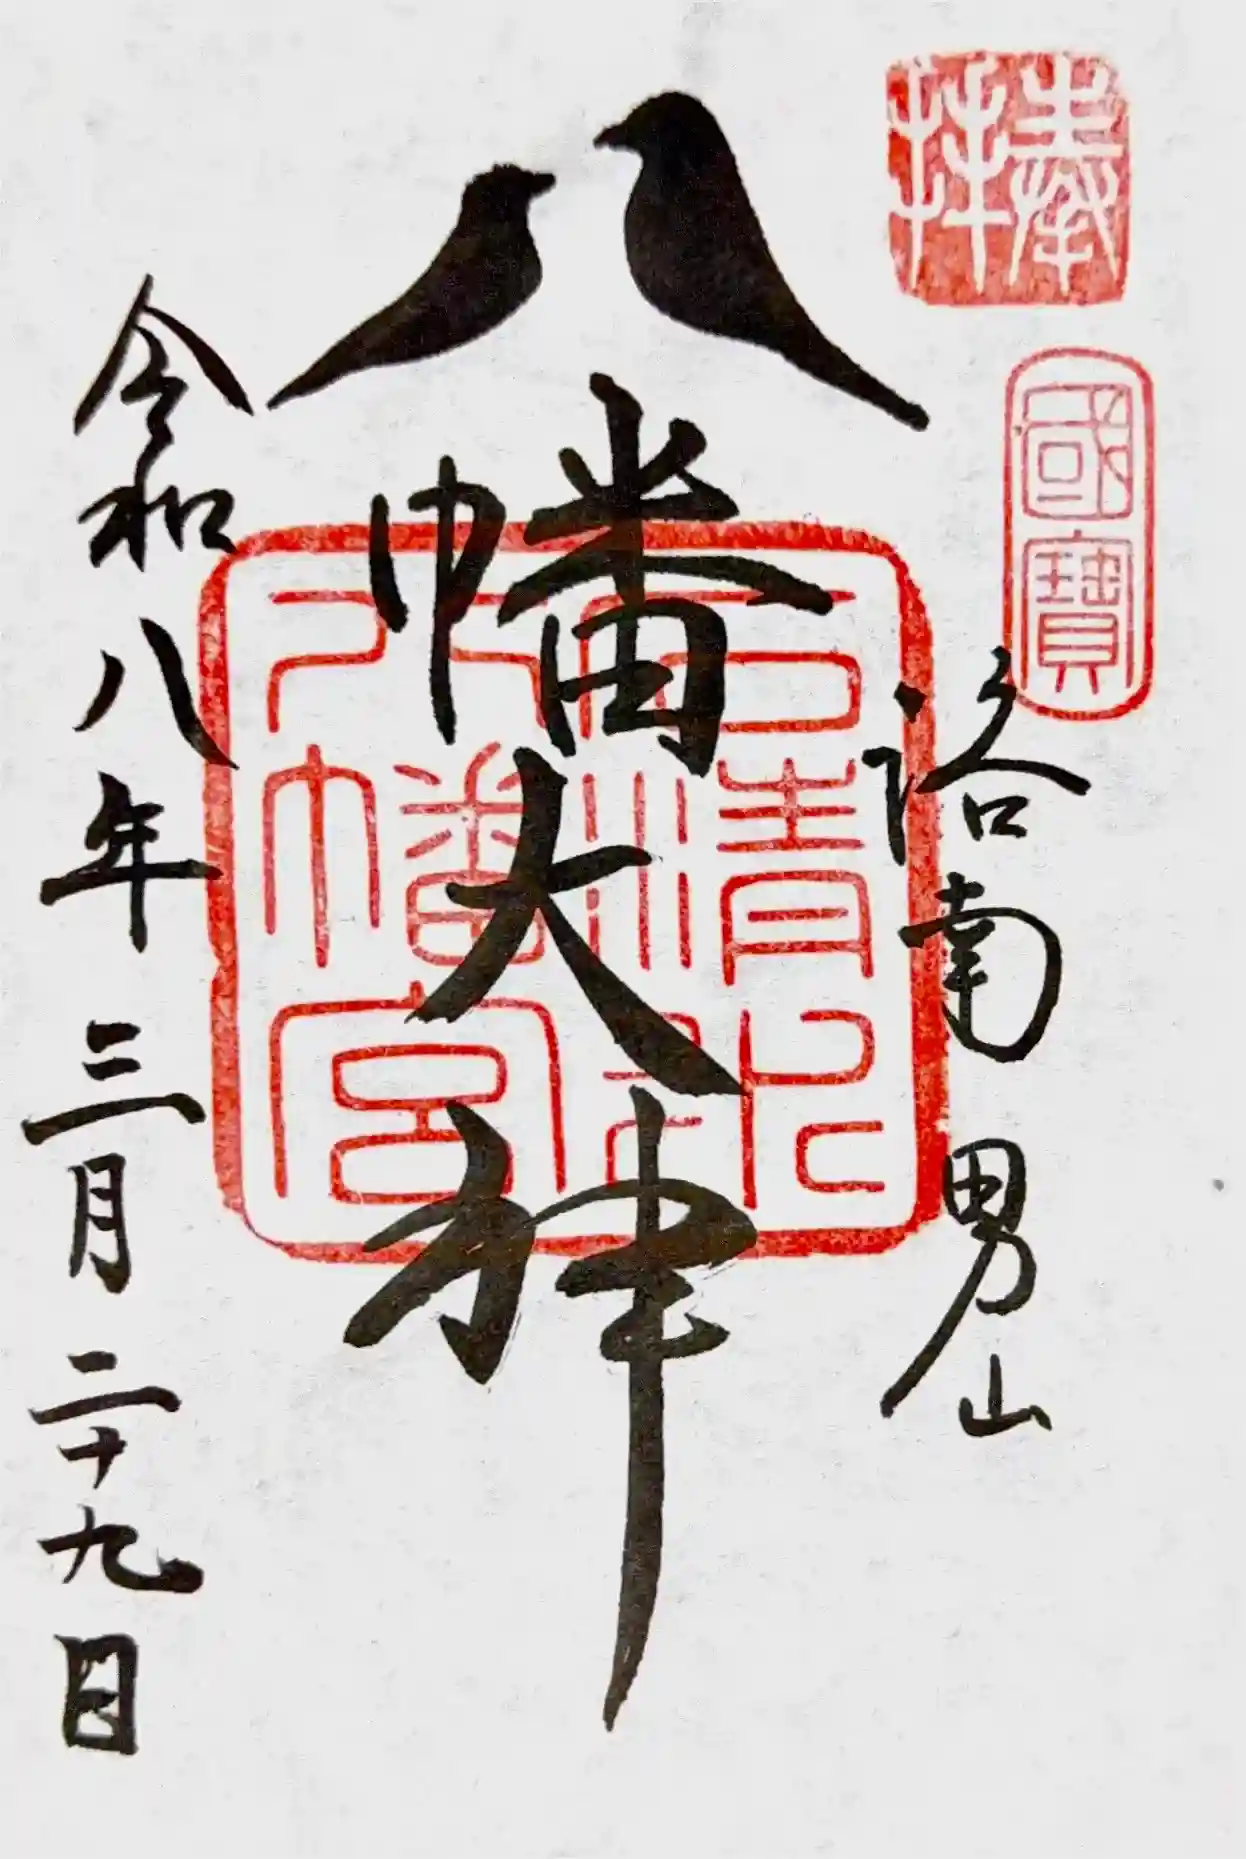 奉拝
國寶
洛南 男山
八幡大神
石清水八幡宮
令和八年三月二十九日